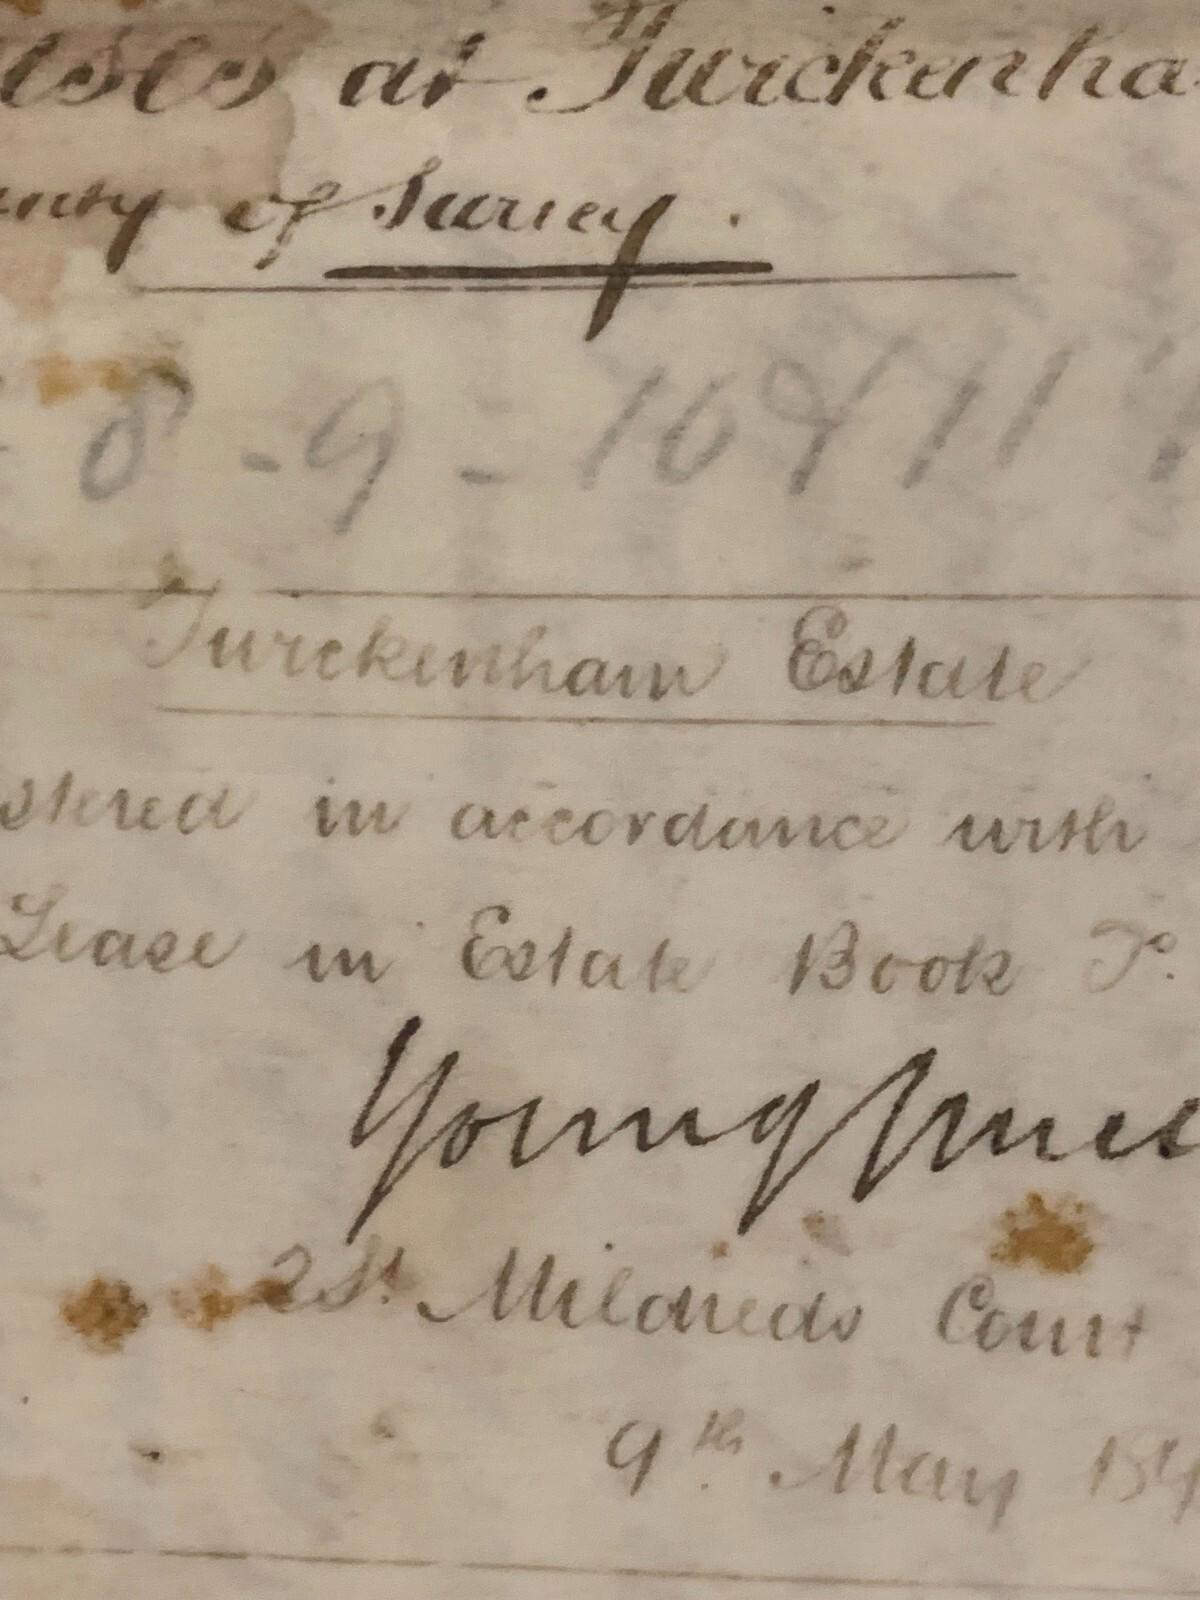 at Turckenha
nty of Surrey.
- 8 - 9 - 10 & 11
Turckenham Estate
stered in accordance with
Lease in Estate Book
Young
2 St. Mildreds Court
9th. May 18